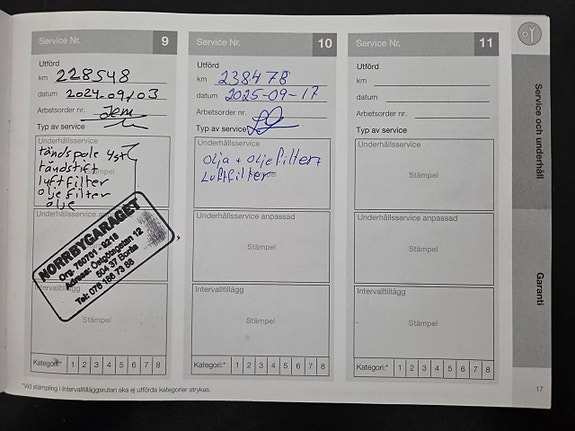 Service Nr. 9
Utförd
km 228548
datum 2024-09/03
Arbetsorder nr.
Typ av service
Underhållsservice
tändspole 4st
tändstift
luftfilter
oljefilter
olje
Underhållsservice anpassad
NORRBYGARAGET
Org. 760701-9218
Adress: Östgötagatan 12
504 37 Borås
Tel: 076 186 73 88
Intervalltillägg
Stämpel
Kategori:* 1 2 3 4 5 6 7 8
*Vid stämpling i Intervalltilläggsrutan ska ej utförda kategorier strykas.
Service Nr. 10
Utförd
km 238478
datum 2025-09-17
Arbetsorder nr.
Typ av service
Underhållsservice
Olja + Oljefilter+
Luftfilter
Underhållsservice anpassad
Stämpel
Intervalltillägg
Stämpel
Kategori:* 1 2 3 4 5 6 7 8
Service Nr. 11
Utförd
km
datum
Arbetsorder nr.
Typ av service
Underhållsservice
Stämpel
Underhållsservice anpassad
Stämpel
Intervalltillägg
Stämpel
Kategori:* 1 2 3 4 5 6 7 8
Service och underhåll
Garanti
17